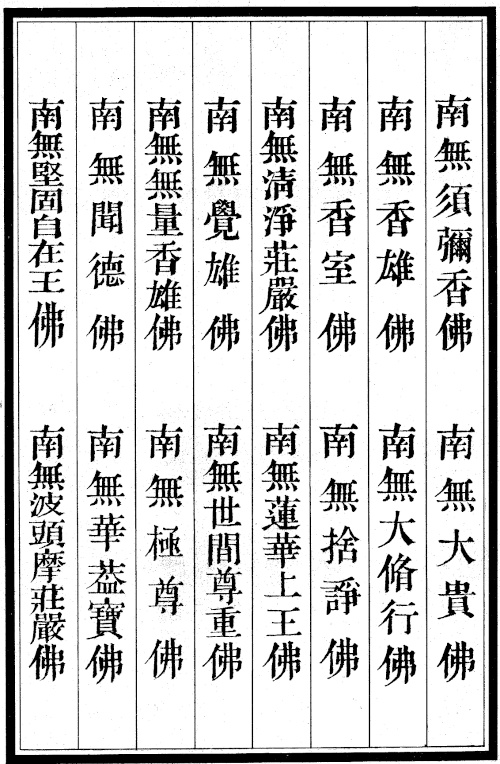 南無須彌香佛　南無大貴佛
南無香雄佛　南無大脩行佛
南無香室佛　南無捨諍佛
南無清淨莊嚴佛　南無蓮華上王佛
南無覺雄佛　南無世間尊重佛
南無無量香雄佛　南無極尊佛
南無聞德佛　南無華葢寶佛
南無堅固自在王佛　南無波頭摩莊嚴佛